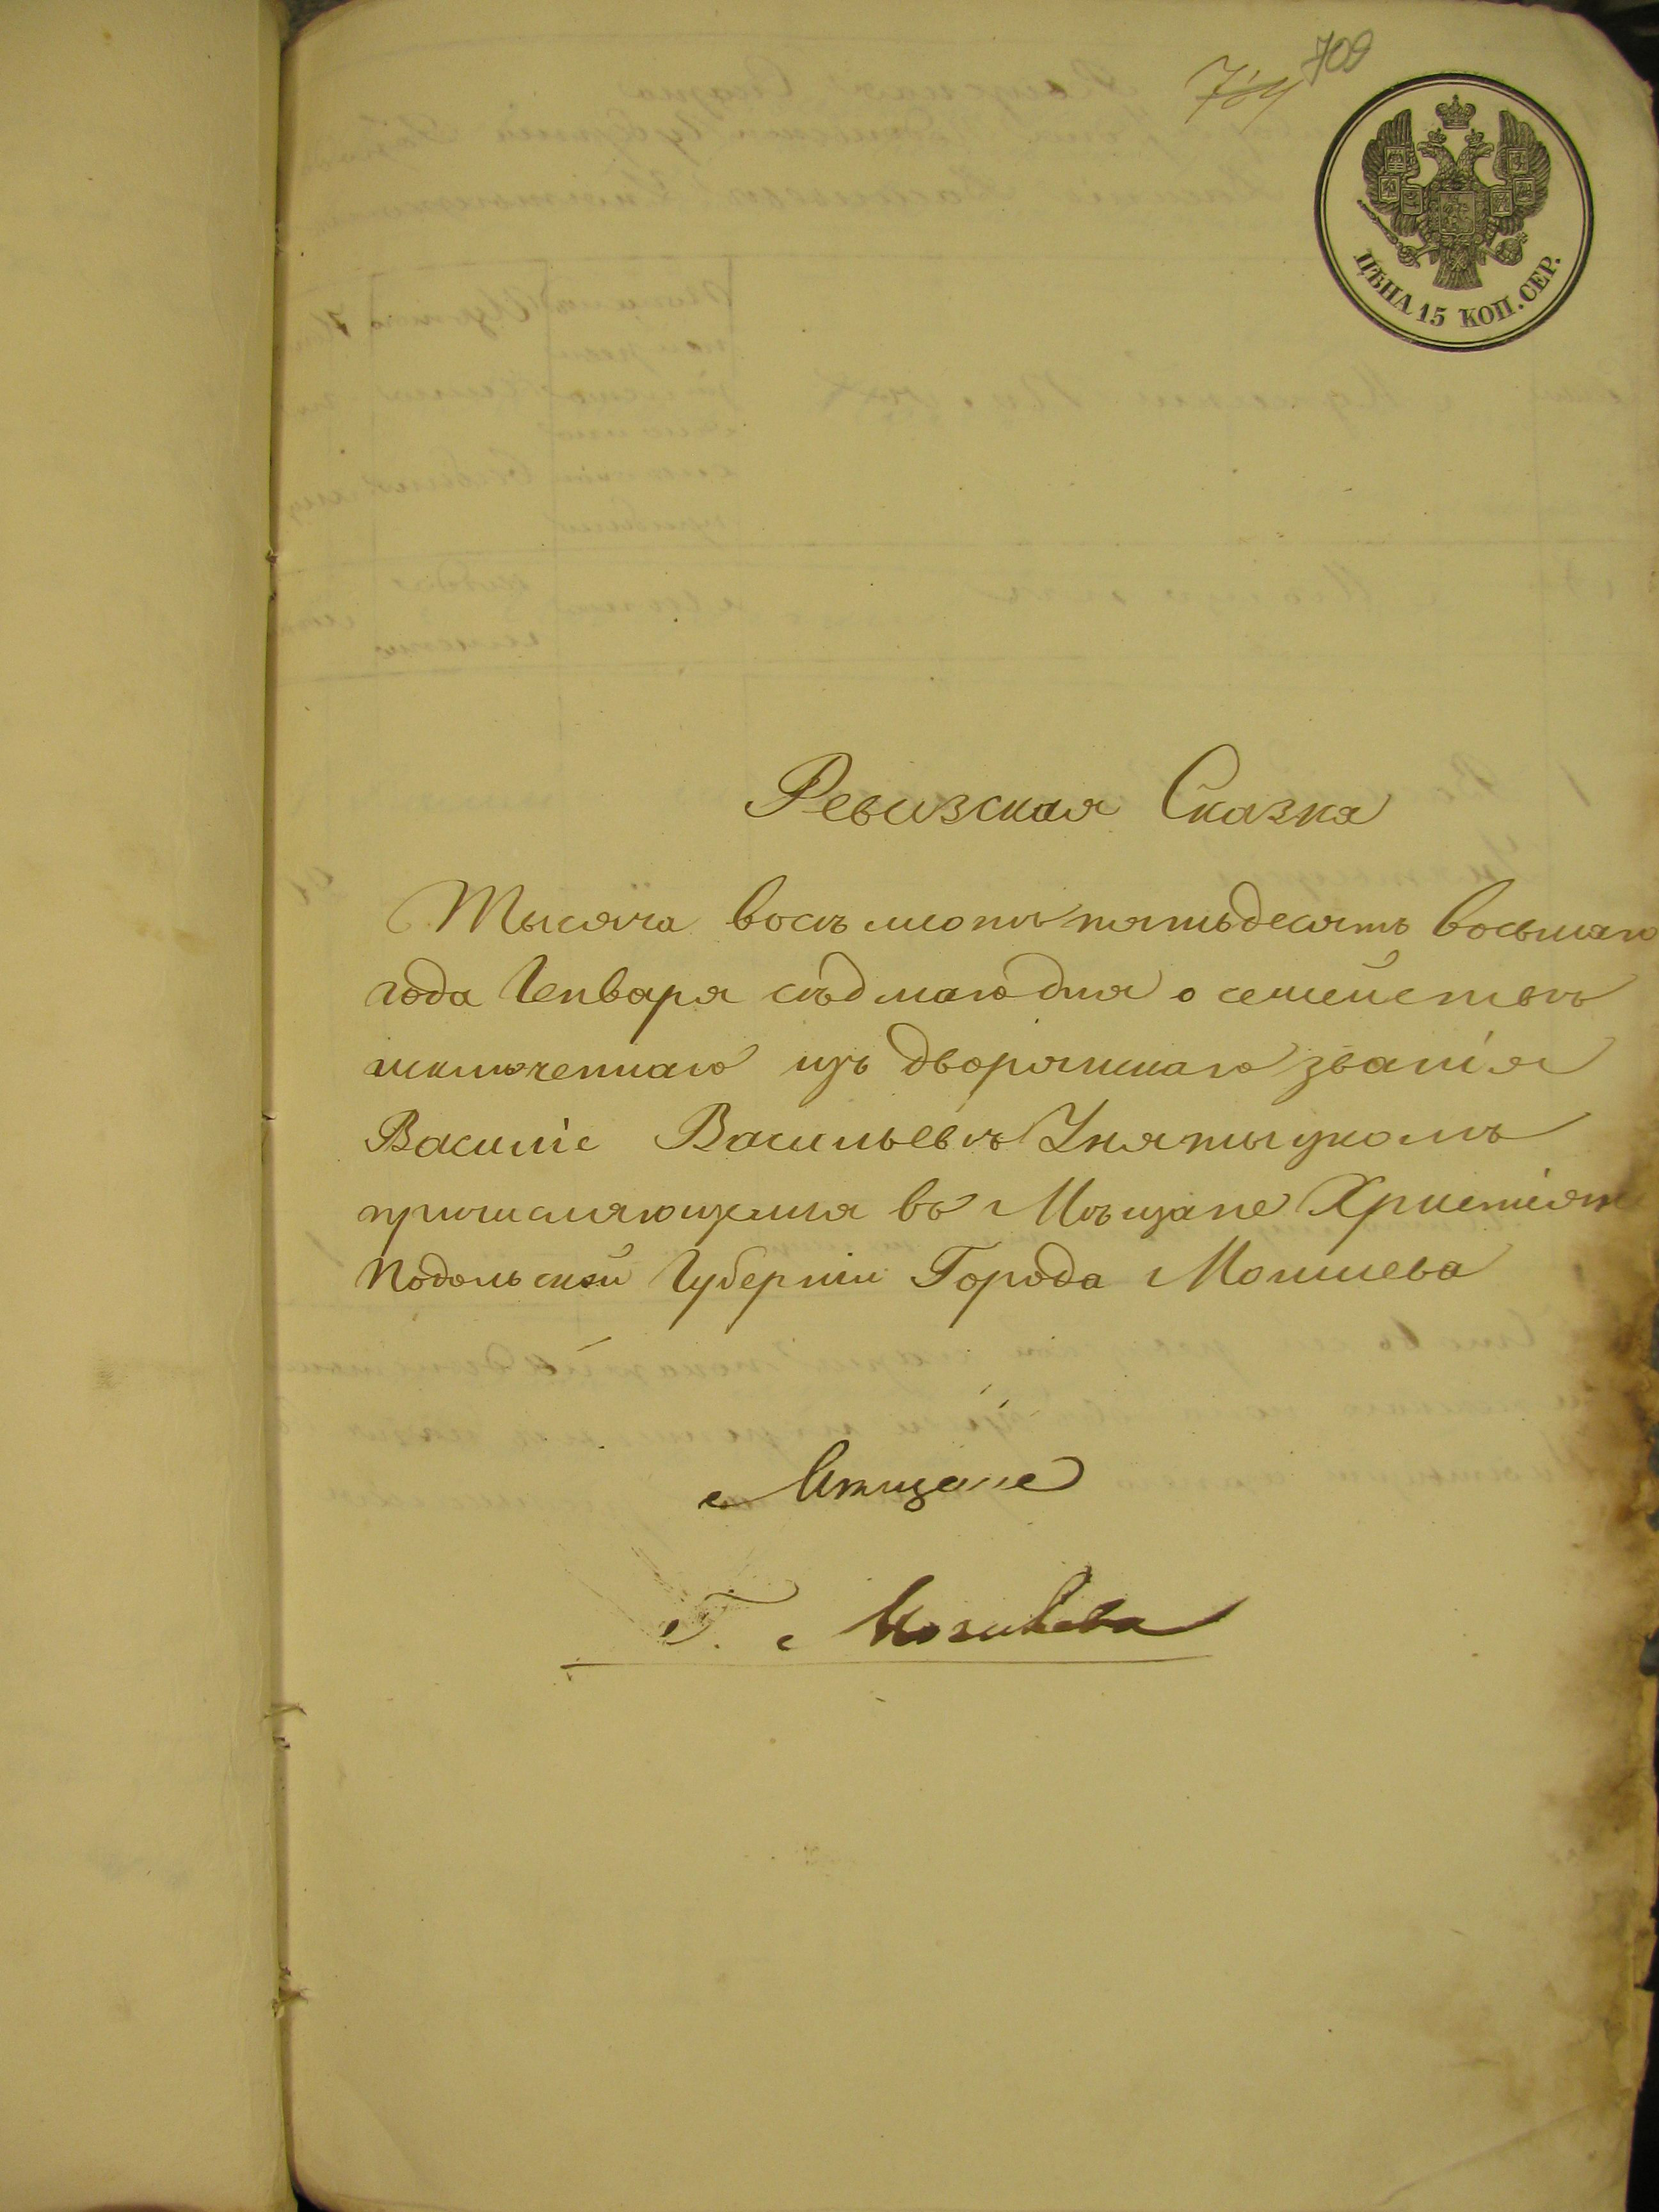 709
704
ЦѢНА 15 КОП. СЕР.
Ревизская Сказка
Тысяча восъмсотъ пятьдесятъ восьмаго
года Генваря съдмаго дня о семействѣ
исключеннаго изъ дворянскаго званія
Василіе Васильевѣ
причисляющемся въ Мѣщане Христіяне
Подольской Губерніи Города Могилева
Мѣщане
Г. Могилева